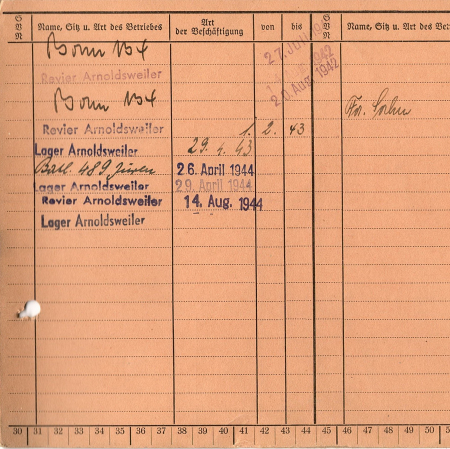 SVN Name, Sitz u. Art des Betriebes Art der Beschäftigung von bis SVN Name, Sitz u. Art des Betr
Bonn
27. Juli
Revier Arnoldsweiler
1942
Bonn
20. Aug. 1942
Revier Arnoldsweiler 1. 2. 43
Lager Arnoldsweiler 29. 4. 43
Batl. 489 Düren 26. April 1944
Lager Arnoldsweiler 29. April 1944
Revier Arnoldsweiler 14. Aug. 1944
Lager Arnoldsweiler
30 31 32 33 34 35 36 37 38 39 40 41 42 43 44 45 46 47 48 49 50 5